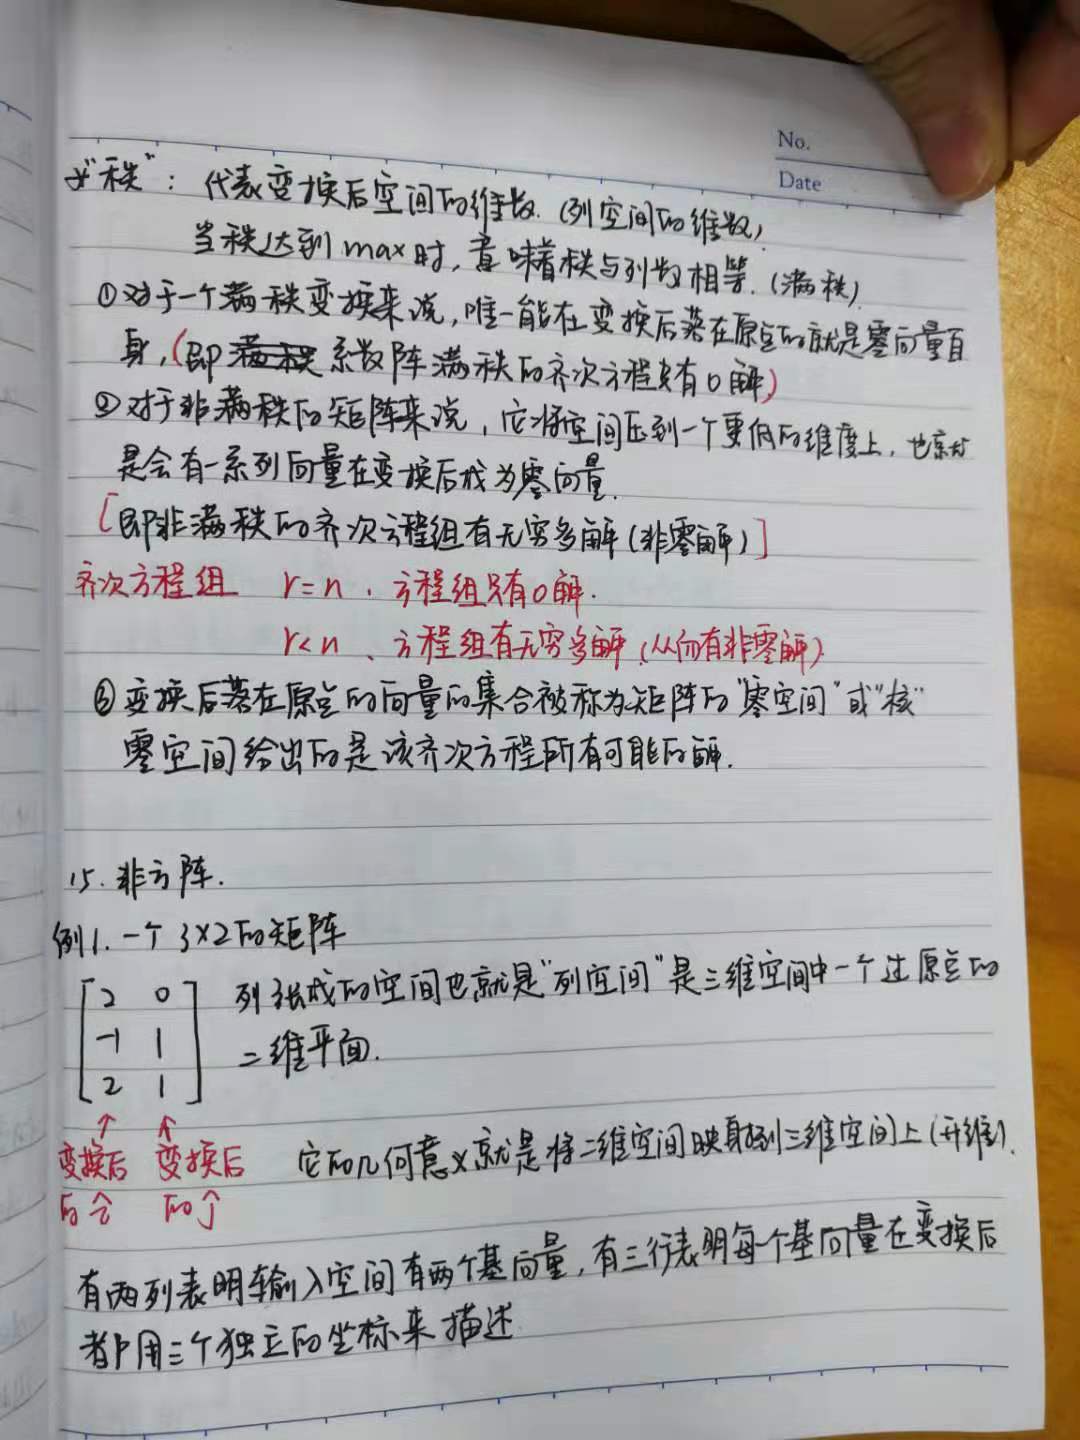 No.
Date
"秩"：代表变换后空间的维数.(列空间的维数)
当秩达到max时,意味着秩与列数相等.(满秩)
①对于一个满秩变换来说,唯一能在变换后落在原点的就是零向量自
身,(即系数阵满秩的齐次方程只有0解)
②对于非满秩的矩阵来说,它将空间压到一个更低的维度上,也就
是会有一系列向量在变换后成为零向量.
[即非满秩的齐次方程组有无穷多解(非零解)]
齐次方程组 r=n、方程组只有0解.
r<n、方程组有无穷多解(从而有非零解)
③变换后落在原点的向量的集合被称为矩阵的"零空间"或"核"
零空间给出的是该齐次方程所有可能的解.
15.非方阵.
例1.一个3×2的矩阵
2 0 列张成的空间也就是"列空间"是三维空间中一个过原点的
-1 1 二维平面.
2 1
↑ ↑
变换后 变换后 它的几何意义就是将二维空间映射到三维空间上(升维).
的 的
有两列表明输入空间有两个基向量,有三行表明每一个基向量在变换后
都用三个独立的坐标来描述